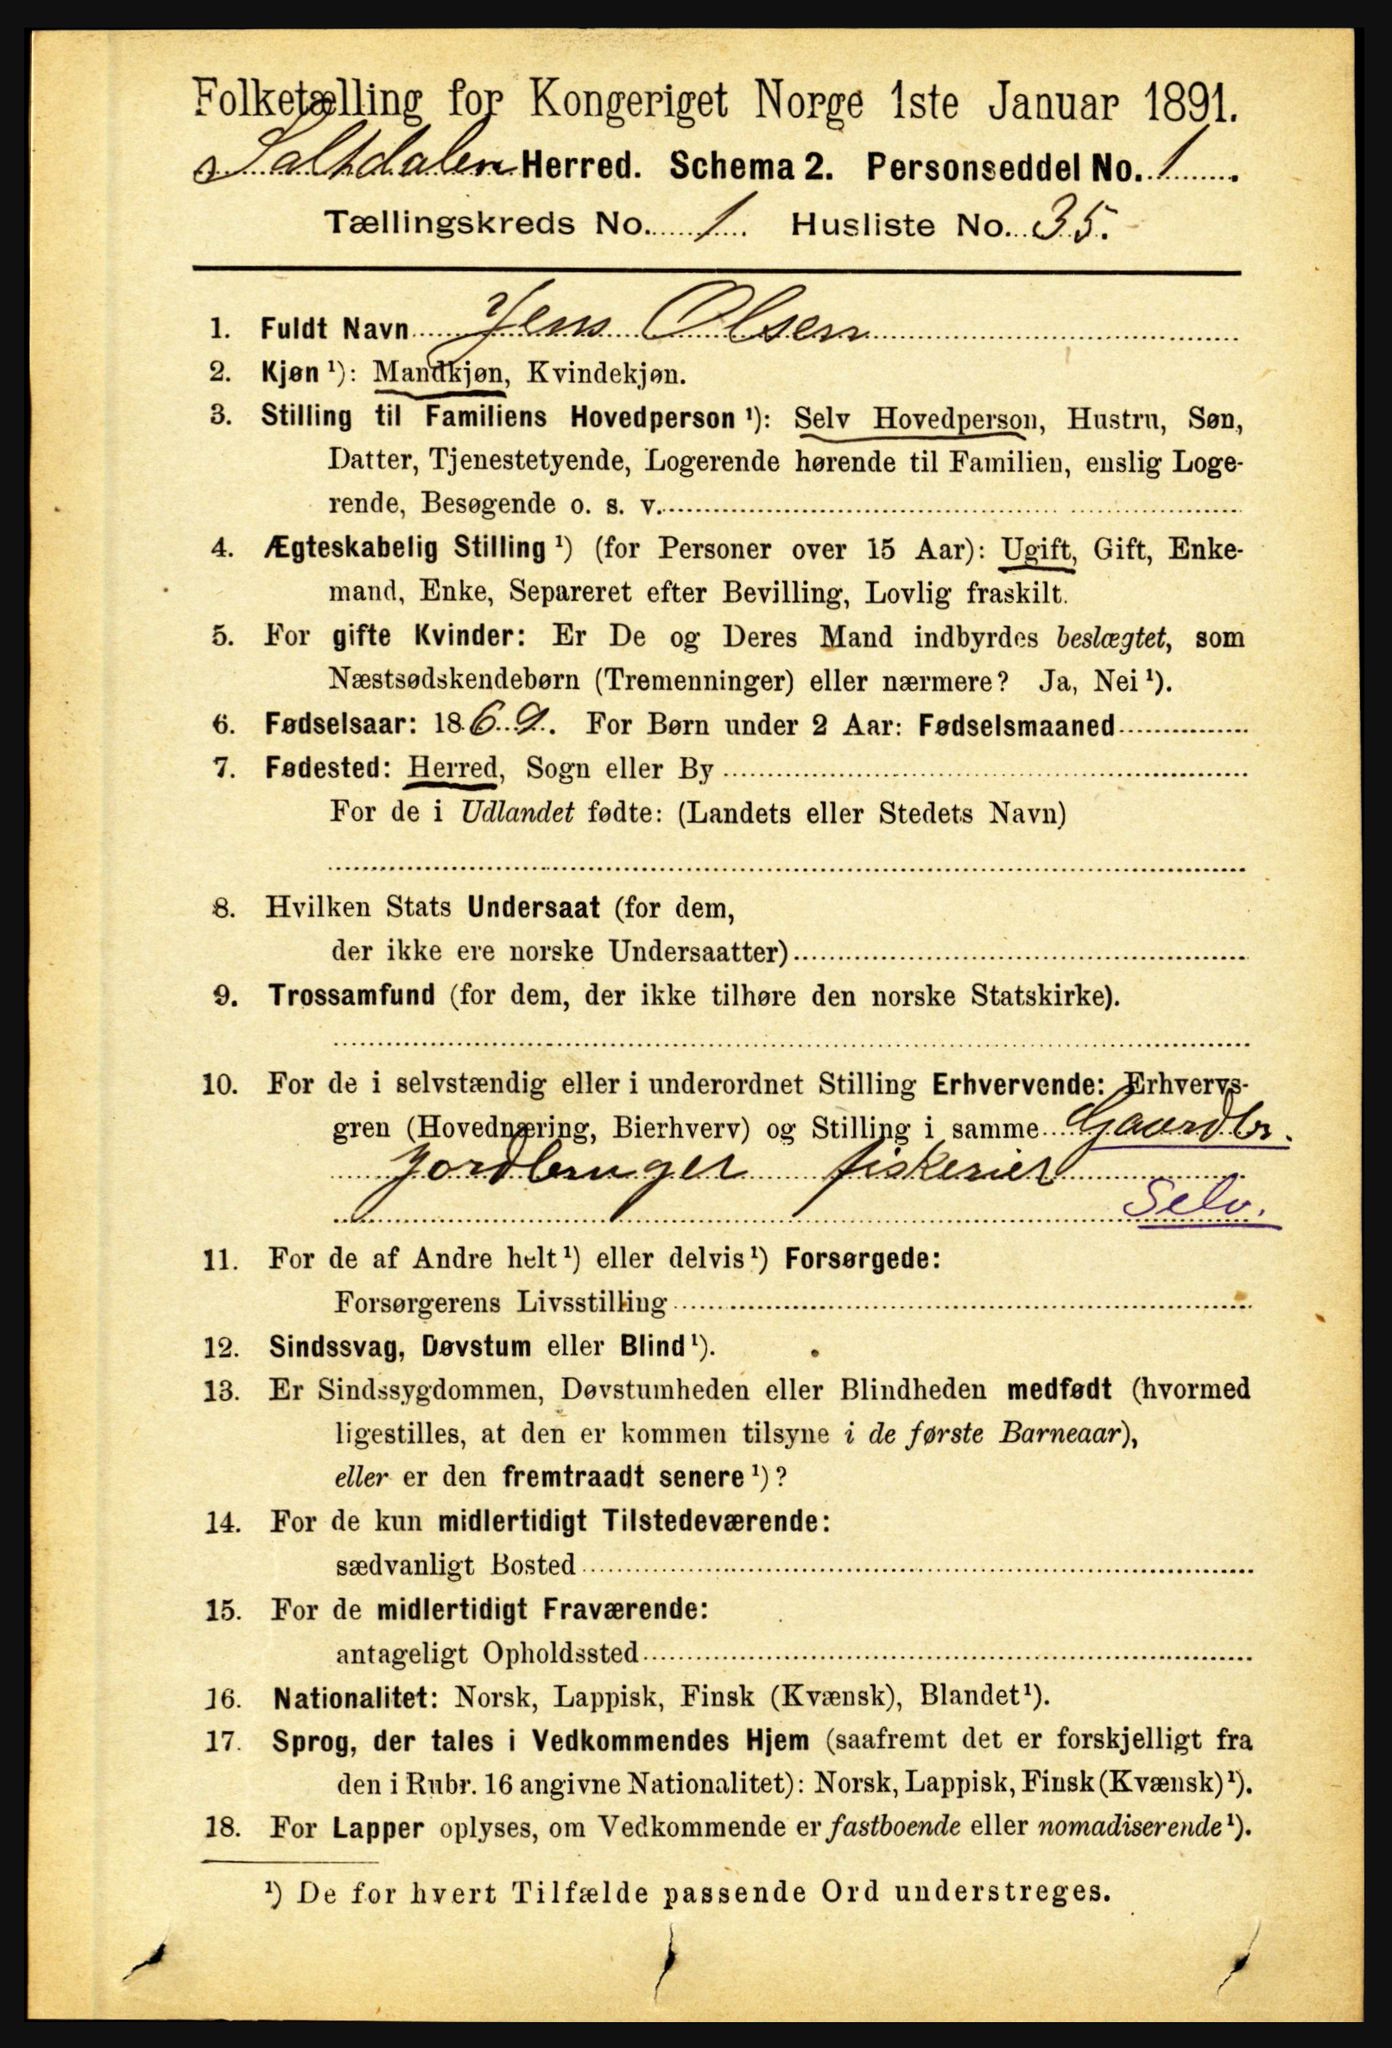 Folketælling for Kongeriget Norge 1ste Januar 1891.
Saltdalen Herred. Schema 2. Personseddel No. 1.
Tællingskreds No. 1. Husliste No. 35.
1. Fuldt Navn Jens Olsen
2. Kjøn ¹): Mandkjøn, Kvindekjøn.
3. Stilling til Familiens Hovedperson ¹): Selv Hovedperson, Hustru, Søn,
Datter, Tjenestetyende, Logerende hørende til Familien, enslig Loge-
rende, Besøgende o. s. v.
4. Ægteskabelig Stilling ¹) (for Personer over 15 Aar): Ugift, Gift, Enke-
mand, Enke, Separeret efter Bevilling, Lovlig fraskilt.
5. For gifte Kvinder: Er De og Deres Mand indbyrdes beslægtet, som
Næstsødskendebørn (Tremenninger) eller nærmere? Ja, Nei ¹).
6. Fødselsaar: 1869. For Børn under 2 Aar: Fødselsmaaned
7. Fødested: Herred, Sogn eller By
For de i Udlandet fødte: (Landets eller Stedets Navn)
8. Hvilken Stats Undersaat (for dem,
der ikke ere norske Undersaatter)
9. Trossamfund (for dem, der ikke tilhøre den norske Statskirke).
10. For de i selvstændig eller i underordnet Stilling Erhvervende: Erhvervs-
gren (Hovednæring, Bierhverv) og Stilling i samme Gaardbr.
Jordbruger fiskerier
Selv.
11. For de af Andre helt ¹) eller delvis ¹) Forsørgede:
Forsørgerens Livsstilling
12. Sindssvag, Døvstum eller Blind ¹).
13. Er Sindssygdommen, Døvstumheden eller Blindheden medfødt (hvormed
ligestilles, at den er kommen tilsyne i de første Barneaar),
eller er den fremtraadt senere ¹)?
14. For de kun midlertidigt Tilstedeværende:
sædvanligt Bosted
15. For de midlertidigt Fraværende:
antageligt Opholdssted
16. Nationalitet: Norsk, Lappisk, Finsk (Kvænsk), Blandet ¹).
17. Sprog, der tales i Vedkommendes Hjem (saafremt det er forskjelligt fra
den i Rubr. 16 angivne Nationalitet): Norsk, Lappisk, Finsk (Kvænsk) ¹).
18. For Lapper oplyses, om Vedkommende er fastboende eller nomadiserende ¹).
¹) De for hvert Tilfælde passende Ord understreges.